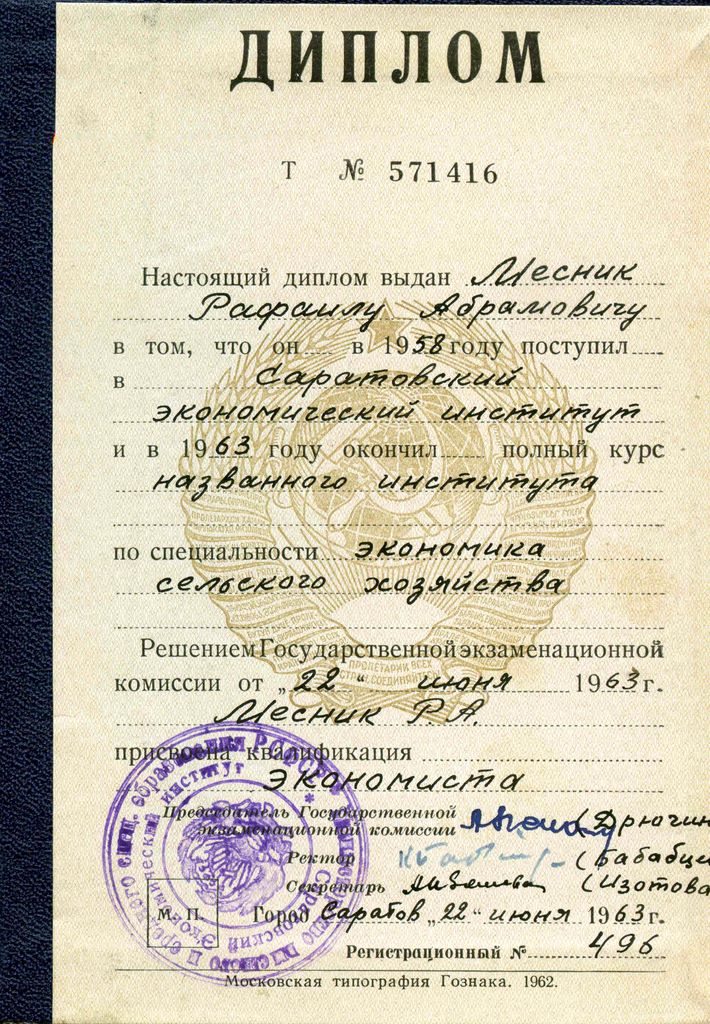 ДИПЛОМ
Т № 571416
Настоящий диплом выдан Месник
Рафаилу Абрамовичу
в том, что он в 1958 году поступил
в Саратовский
экономический институт
и в 1963 году окончил полный курс
названного института
по специальности экономика
сельского хозяйства
Решением Государственной экзаменационной
комиссии от „22“ июня 1963 г.
Месник Р. А.
присвоена квалификация
экономиста
Председатель Государственной
экзаменационной комиссии (Дрючин
Ректор (Бабабце
Секретарь (Изотова
М. П. Город Саратов „22“ июня 1963 г.
Регистрационный № 496
Московская типография Гознака. 1962.